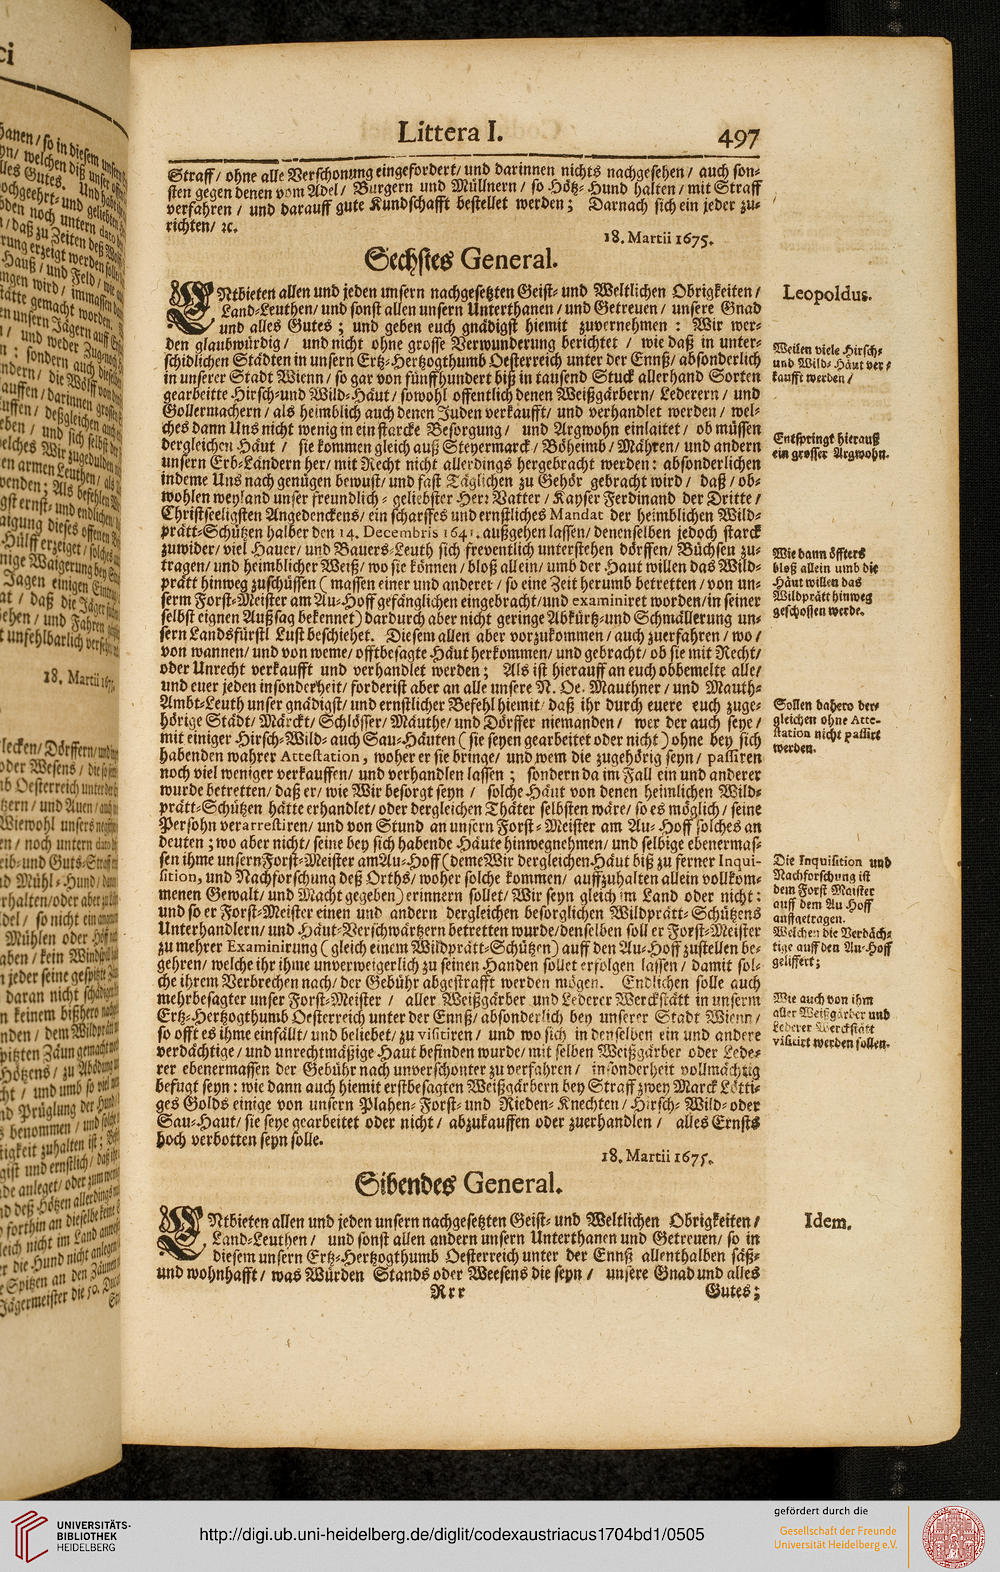 Littera I. 497
Straff/ ohne alle Verschonung eingefordert/ und darinnen nichts nachgesehen/ auch son-
sten gegen denen vom Adel/ Burgern und Müllnern/ so Hötz-Hund halten/ mit Straff
verfahren / und darauff gute Kundschafft bestellet werden; Darnach sich ein jeder zu-
richten/ ꝛc.
18. Martii 1675.
Sechstes General.
ENtbieten allen und jeden unsern nachgesetzten Geist- und Weltlichen Obrigkeiten/
Land-Leuthen/ und sonst allen unsern Unterthanen / und Getreuen/ unsere Gnad
und alles Gutes ; und geben euch gnädigst hiemit zuvernehmen : Wir wer-
den glaubwürdig / und nicht ohne grosse Verwunderung berichtet / wie daß in unter-
schidlichen Städten in unsern Ertz-Hertzogthumb Oesterreich unter der Ennß/ absonderlich
in unserer Stadt Wienn/ so gar von fünffhundert biß in tausend Stuck allerhand Sorten
gearbeitte Hirsch-und Wild-Häut/ sowohl offentlich denen Weißgärbern/ Lederern/ und
Gollermachern/ als heimblich auch denen Juden verkaufft/ und verhandlet werden / wel-
ches dann Uns nicht wenig in ein starcke Besorgung/ und Argwohn einlaitet/ ob müssen
dergleichen Häut / sie kommen gleich auß Steyermarck / Böheimb / Mähren/ und andern
unsern Erb-Ländern her/ mit Recht nicht allerdings hergebracht werden: absonderlichen
indeme Uns nach genügen bewust/ und fast Täglichen zu Gehör gebracht wird / daß / ob-
wohlen weyland unser freundlich- geliebster Herꝛ Vatter / Kayser Ferdinand der Dritte /
Christseeligsten Angedenckens/ ein scharffes und ernstliches Mandat der heimblichen Wild-
prätt-Schützen halber den 14. Decembris 164 . außgehen lassen/ denenselben jedoch starck
zuwider/ viel Hauer/ und Bauers-Leuth sich freventlich unterstehen dörffen/ Büchsen zu-
tragen/ und heimblicher Weiß/ wo sie können / bloß allein/ umb der Haut willen das Wild-
prätt hinweg zuschüssen ( massen einer und anderer / so eine Zeit herumb betretten / von un-
serm Forst-Meister am Au-Hoff gefänglichen eingebracht/ und examiniret worden/ in seiner
selbst eignen Außsag bekennet) dardurch aber nicht geringe Abkürtz-und Schmällerung un-
sern Landsfürstl Lust beschiehet. Diesem allen aber vorzukommen / auch zuerfahren / wo /
von wannen/ und von weme/ offtbesagte Häut herkommen/ und gebracht/ ob sie mit Recht/
oder Unrecht verkaufft und verhandlet werden ; Als ist hierauff an euch obbemelte alle/
und euer jeden insonderheit/ forderist aber an alle unsere N. Oe. Mauthner / und Mauth-
Ambt-Leuth unser gnädigst/ und ernstlicher Befehl hiemit/ daß ihr durch euere euch zuge-
hörige Städt/ Märckt/ Schlösser/ Mäuthe/ und Dörffer niemanden / wer der auch seye /
mit einiger Hirsch-Wild- auch Sau-Häuten ( sie seyen gearbeitet oder nicht ) ohne bey sich
habenden wahrer Attestation, woher er sie bringe/ und wem die zugehörig seyn / passiren
noch viel weniger verkauffen/ und verhandlen lassen ; sondern da im Fall ein und anderer
wurde betretten/ daß er/ wie Wir besorgt seyn / solche Häut von denen heimlichen Wild-
prätt-Schützen hätte erhandlet/ oder dergleichen Thäter selbsten wäre/ so es möglich/ seine
Persohn verarrestiren/ und von Stund an unsern Forst-Meister am Au-Hoff solches an
deuten ; wo aber nicht/ seine bey sich habende Häute hinwegnehmen/ und selbige ebenermas-
sen ihme unsern Forst-Meister am Au-Hoff ( deme Wir dergleichen Häut biß zu ferner Inqui-
sition, und Nachforschung deß Orths/ woher solche kommen/ auffzuhalten allein vollkom-
menen Gewalt/ und Macht gegeben) erinnern sollet/ Wir seyn gleich im Land oder nicht:
und so er Forst-Meister einen und andern dergleichen besorglichen Wildprätt-Schützens
Unterhandlern/ und Häut-Verschwärtzern betretten wurde/ denselben soll er Forst-Meister
zu mehrer Examinirung ( gleich einem Wildprätt-Schützen) auff den Au-Hoff zustellen be-
gehren/ welche ihr ihme unverweigerlich zu seinen Handen sollet erfolgen lassen / damit sol-
che ihrem Verbrechen nach/ der Gebühr abgestrafft werden mögen. Endlichen solle auch
mehrbesagter unser Forst-Meister / aller Weißgärber und Lederer Werckstätt in unserm
Ertz-Hertzogthumb Oesterreich unter der Ennß/ absonderlich bey unserer Stadt Wienn/
so offt es ihme einfällt/ und beliebet/ zu visitiren/ und wo sich in denselben ein und andere
verdächtige / und unrechtmäßige Haut befinden wurde/ mit selben Weißgärber oder Lede-
rer ebenermassen der Gebühr nach unverschonter zu verfahren / insonderheit vollmächtig
befugt seyn : wie dann auch hiemit erstbesagten Weißgärbern bey Straff zwey Marck Lötti-
ges Golds einige von unsern Plahen- Forst- und Rieden-Knechten / Hirsch- Wild- oder
Sau-Haut/ sie seye gearbeitet oder nicht / abzukauffen oder zuerhandlen / alles Ernsts
hoch verbotten seyn solle.
18. Martii 1675.
Sibendes General.
ENtbieten allen und jeden unsern nachgesetzten Geist- und Weltlichen Obrigkeiten /
Land-Leuthen / und sonst allen andern unsern Unterthanen und Getreuen/ so in
diesem unsern Ertz-Hertzogthumb Oesterreich unter der Ennß allenthalben säß-
und wohnhafft / was Würden Stands oder Weesens die seyn / unsere Gnad und alles
Rrr Gutes;
Leopoldus.
Weilen viele Hirsch-
und Wild-Häut ver-
kaufft werden /
Entspringt hierauß
ein grosser Argwohn.
Wie dann öffters
bloß allein umb die
Häut willen das
Wildprätt hinweg
geschossen werde.
Sollen dahero der-
gleichen ohne Atte-
station nicht passirt
werden.
Die Inquisition und
Nachforschung ist
dem Forst Maister
auff dem Au Hoff
auffgetragen.
Welchen die Verdäch-
tige auff den Au-Hoff
geliffert;
Wie auch von ihm
aller Weißgärber und
Lederer Werckstätt
visitirt werden sollen.
Idem.
18. Martii 167
UNIVERSITÄTS-
BIBLIOTHEK
HEIDELBERG
http://digi.ub.uni-heidelberg.de/diglit/codexaustriacus1704bd1/0505
gefördert durch die
Gesellschaft der Freunde
Universität Heidelberg e.V.